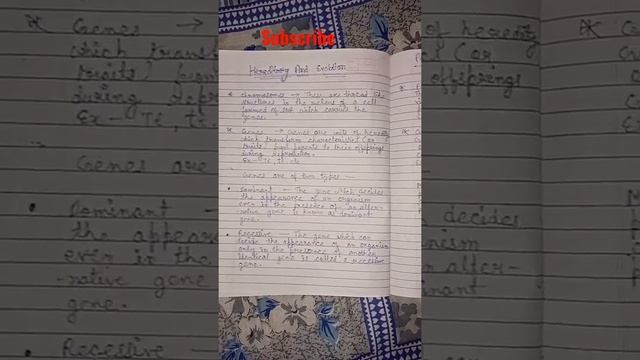 Subscribe
Heredity And Evolution
* Chromosomes → These are thread like
structures in the nucleus of a cell
formed of DNA which carries the
genes.
* Genes → Genes are units of heredity
which transform characteristics (or
traits) from parents to their offsprings
during reproduction.
Ex - TE, tt
Genes are of two types —
• Dominant — The gene which decides
the appearance of an organism
even in the presence of an alter-
native gene is known as dominant
gene.
• Recessive — The gene which can
decide the appearance of an organism
only in the presence of another
identical gene is called a recessive
gene.